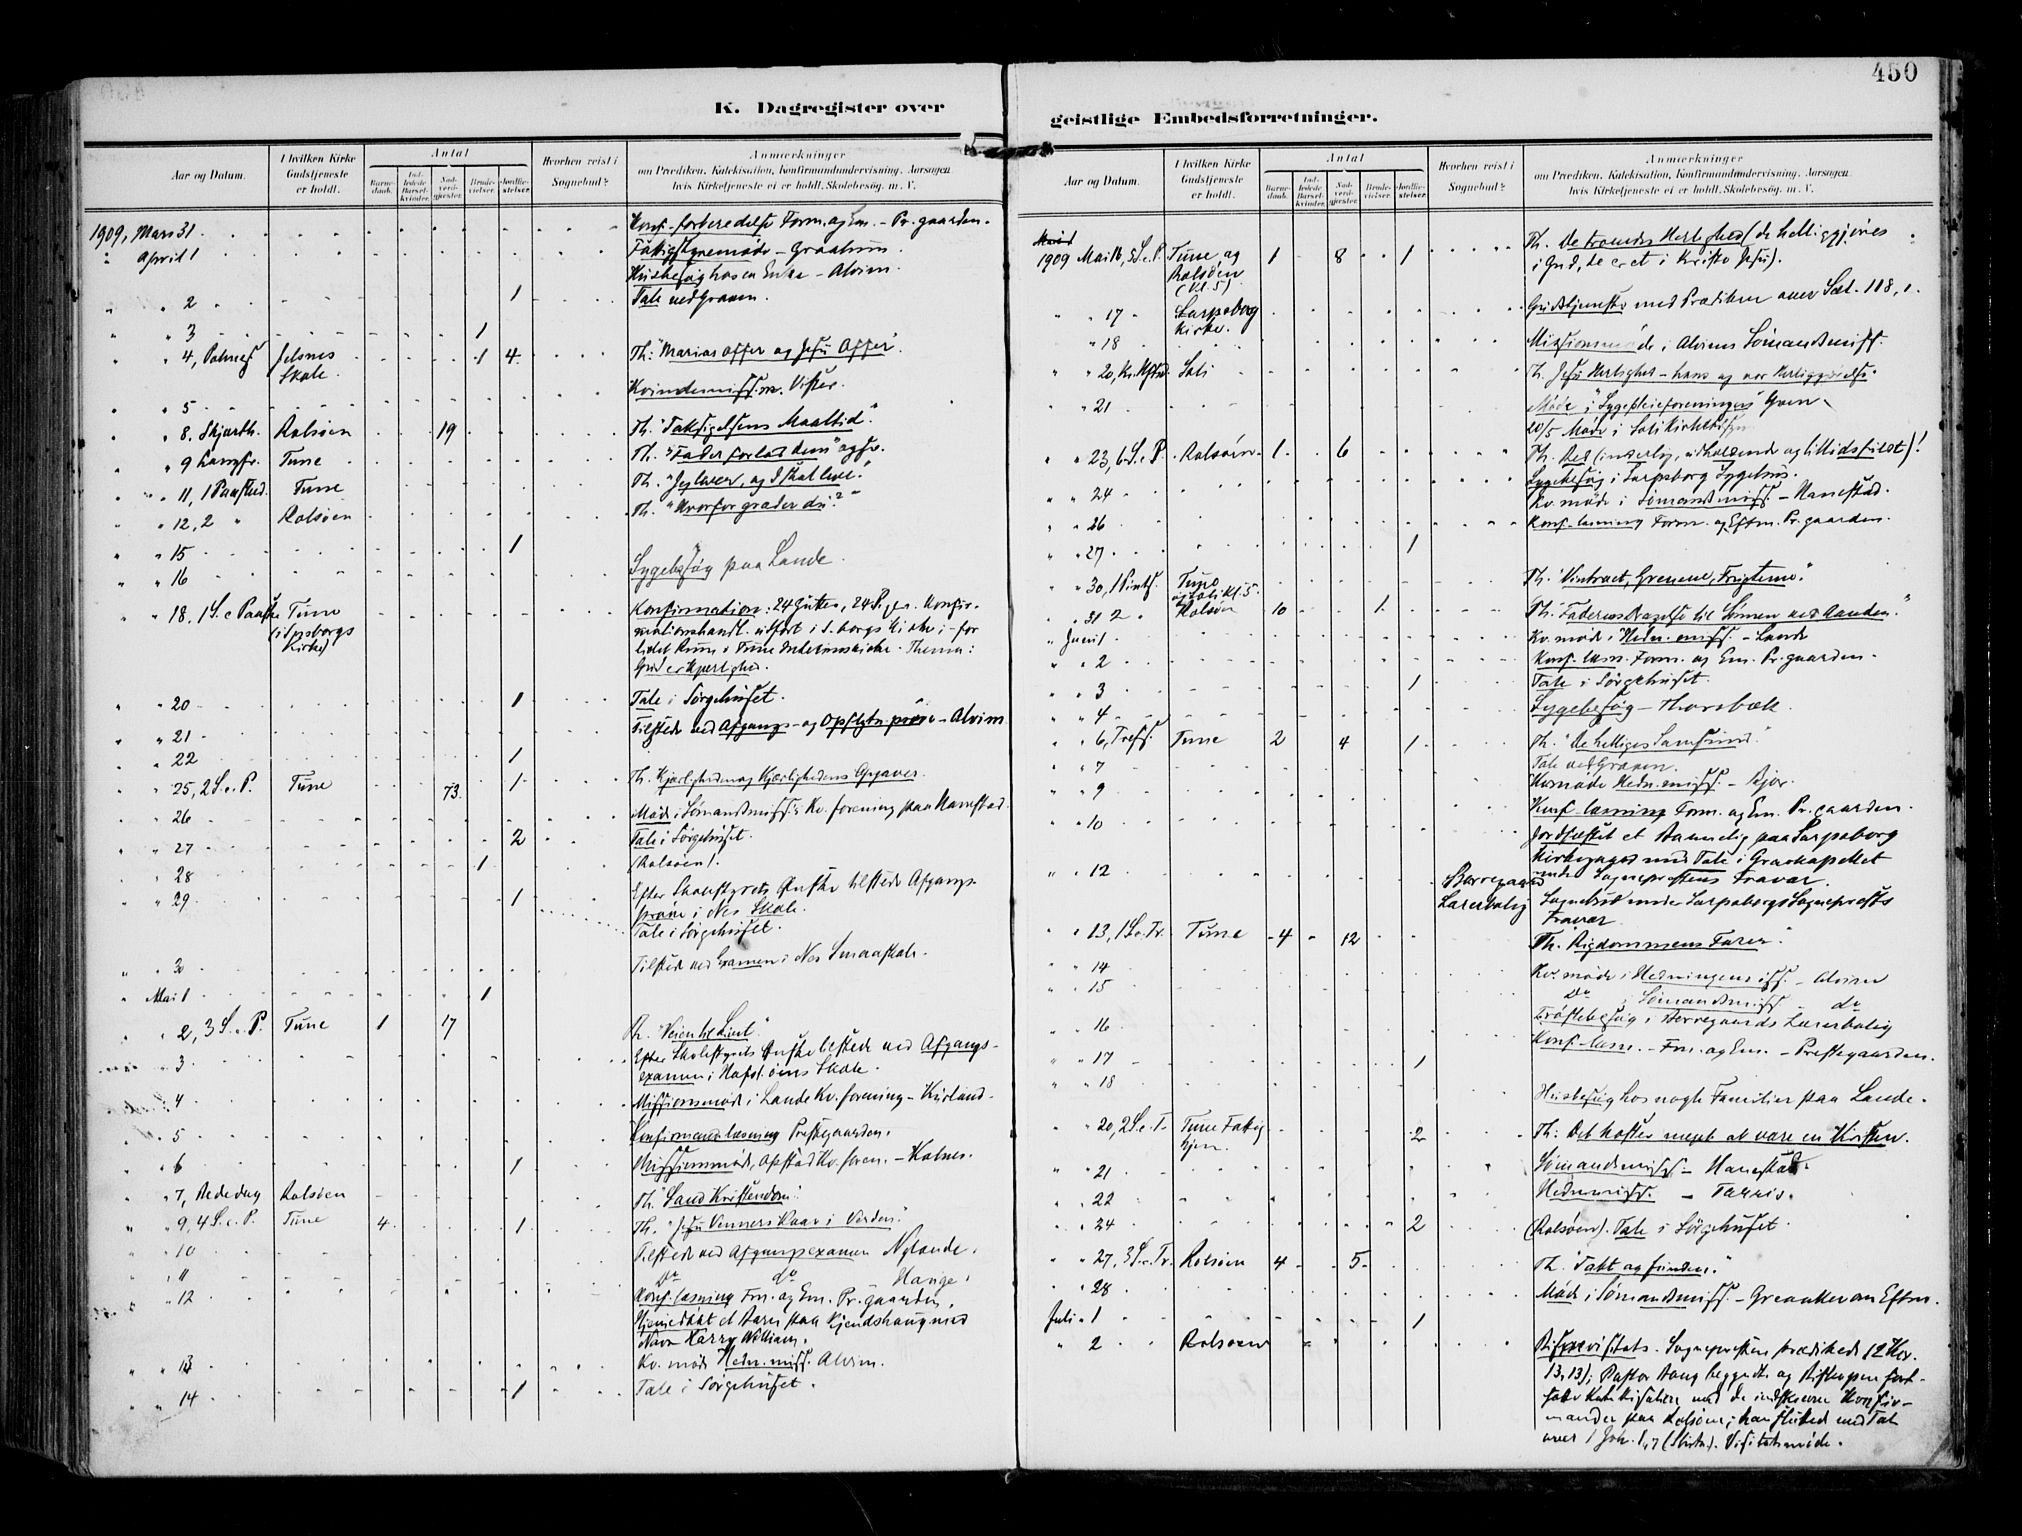 450
K. Dagregister over
geistlige Embedsforretninger.
Aar og Datum. I hvilken Kirke Gudstjeneste er holdt. Antal Barnedaab. Indledede Barselkvinder. Nadverdgjester. Brudevielser. Jordfæstelser. Hvorhen reist i Sognebud? Anmærkninger om Prædiken, Katekisation, Konfirmandundervisning, Aarsagen hvis Kirketjeneste ei er holdt, Skolebesøg, m. V.
1909, Mars 31 Konf.-forberedelse Form. og Em. - Pr. gaarden.
" April 1 Fattigstyremøde - Graalum.
Husbesøg hos en Enke - Alvim.
" " 2 1 Tale ved Graven.
" " 3 1
" " 4, Palmes. Jelsnes Skole. 1 4 Th: "Marias Offer og Jesu Offer".
" " 5 Kvindemiss.m. Vister.
" " 8. Skjærth. Rolsøen 19 Th. "Taksigelsens Maaltid".
" " 9 Langfr. Tune Th. "Fader forlad dem" og fr.
" " 11, 1 Paaskd. Tune Th. "Jeg lever, og I skal leve".
" " 12, 2 " Rolsøen Th. "Hvorfor græder du?"
" " 15 1
" " 16 Sygebesøg paa Lande.
" " 18. 1 S. e Paaske Tune (i Spsborgs Kirke) Konfirmation: 24 Gutter, 24 Piger. Konfir-
mationshandl. udført i S.borgs Kirke i- for
Thema:
Gud er kjærlighed.
" " 20 1 Tale i Sørgehuset.
" " 21 Tilstede ved Afgangs- og Opflytn.prøve - Alvim
" " 22 1
" " 25, 2 S. e. P. Tune 73. 1 Th. Kjærligheden og Kjærlighedens Opgaver.
" " 26 Møde i Sømandsmiss.s Kv. forening paa Hanestad.
" " 27 2 Tale i Sørgehuset.
" " 28 1 (Rolsøen).
" " 29 1 Efter Skolestyrets Ønske tilstede Afgangs-
prøve i Nes Skole.
Tale i Sørgehuset.
" " 30 Tilstede ved Examen i Nes Smaaskole.
" Mai 1 1
" " 2, 3 S. e. P. Tune 1 17 Th. "Veien til Livet".
" 3 Efter Skolestyrets Ønske tilstede ved Afgangs-
examen i Hafsløens Skole.
" 4 Missionsmøde i Lande Kv. forening - Kurland.
" " 5 Konfirmandlæsning Prestegaarden.
" " 6 1 Missionsmøde, Opstad Kv. foren. - Kalnes.
" " 7, Bededag Rolsøen Th. "Sand Kristendom".
" " 9, 4 S. e. P. Tune 4 1 Th. "Jesu Venners Kaar i Verden".
" " 10 Tilstede ved Afgangsexamen Nylande.
" " 11 do do Hauge.
" " 12 Konf. læsning Fm. og Em. Pr. gaarden.
Hjemedøbt et Barn paa Kjendshaug med
Navn Harry William.
" " 13 Kv. møde Hedn. miss. Alvim.
" " 14 1 Tale i Sørgehuset.
Aar og Datum. I hvilken Kirke Gudstjeneste er holdt. Antal Barnedaab. Indledede Barselkvinder. Nadverdgjester. Brudevielser. Jordfæstelser. Hvorhen reist i Sognebud? Anmærkninger om Prædiken, Katekisation, Konfirmandundervisning, Aarsagen hvis Kirketjeneste ei er holdt, Skolebesøg, m. V.
1909 Mai 16, 5 S. e. P. Tune og Rolsøen (Kl. 5) 1 8 1 Th. De troendes Herlighed (de helliggjøres
i Gud, de er et i Kristo Jesu).
" " 17 Sarpsborg Kirke. Gudstjeneste med Prædiken over Sal. 118, 1.
" 18 Missionsmøde i Alvims Sømandsmiss.
" " 20, Kr. Hfd. Soli Th. Jesu Herlighed - hans og vor Herliggjørelse.
" " 21 Møde i "Sygepleieforeningen"
20/5 Møde i Soli
" " 23, 6 S. e. P. Rolsøen 1 6
" " 24 Sygebesøg i Sarpsborg Sygehus.
Kv. møde i Sømandsmiss. - Hanestad.
" " 26 Konf-læsning Form. og Eftm. Pr. gaarden.
" " 27 1
" " 30, 1 Pintsd. Tune og Soli kl. 5 Th. "Vintræet, Grenene, Frugterne."
" " 31 2 " Rolsøen 10 1 Th. "Faderens Dragelse til Sønnen ved Aanden."
" Juni 1 Kv. møde i Hedn. miss. - Lande
" " 2 Konf. læsn. Form. og Em. Pr. gaarden.
" " 3 1 Tale i Sørgehuset.
" " 4 Sygebesøg - Thorsbæk.
" " 6, Trefs. Tune 2 4 1 Th. "De helliges Samfund".
" " 7 Tale ved Graven.
" " 9 Kv. møde Hedn. miss.
" " 10 Konf-læsning Form. og Em. Pr. gaarden.
Jordfæstet et Barnelig paa Sarpsborg
Kirkegaard med Tale i Gravkapellet
under Sogneprestens Fravær.
" " 12 Borregaard Lærerbolig Sognebud under Sarpsborgs Sogneprests
Fravær.
" " 13, 1 S. e. Tr. Tune 4 12 Th. "Rigdommens Farer".
" " 14 Kv. møde i Hedningemiss. - Alvim
" " 15 do Sømandsmiss - do
" " 16 Trøstebesøg i Borregaards Lærerbolig
" " 17 1 Konf-læsn. - Fm. og Em. - Prestegaarden.
" " 18 Husbesøg hos nogle Familier paa Lande.
" " 20, 2 S. e. T. Tune Fattighjem. 2 Th: Det koster meget at være en Kristen.
" " 21 Sømandsmiss - Hanestad.
" " 22 Hednmiss. - Tarris.
" " 24 2 (Rolsøen). Tale i Sørgehuset.
" " 27, 3 S. e. Tr. Rolsøen 4 5 Th. "Tabt og funden."
" " 28 Møde i Sømandsmiss. - Greaaker om Eftm.
Juli 1 1
" 2 Rolsøen Bispevisitats. Sognepresten prædikede (2 Kor.
13, 13); Pastor begyndte og Biskopen fort-
satte Katekisation med de indskrevne Konfir-
mander paa Rolsøen; han sluttede med Tale
over 1 Joh. 1,7 (Slutn). Visitatsmøde.